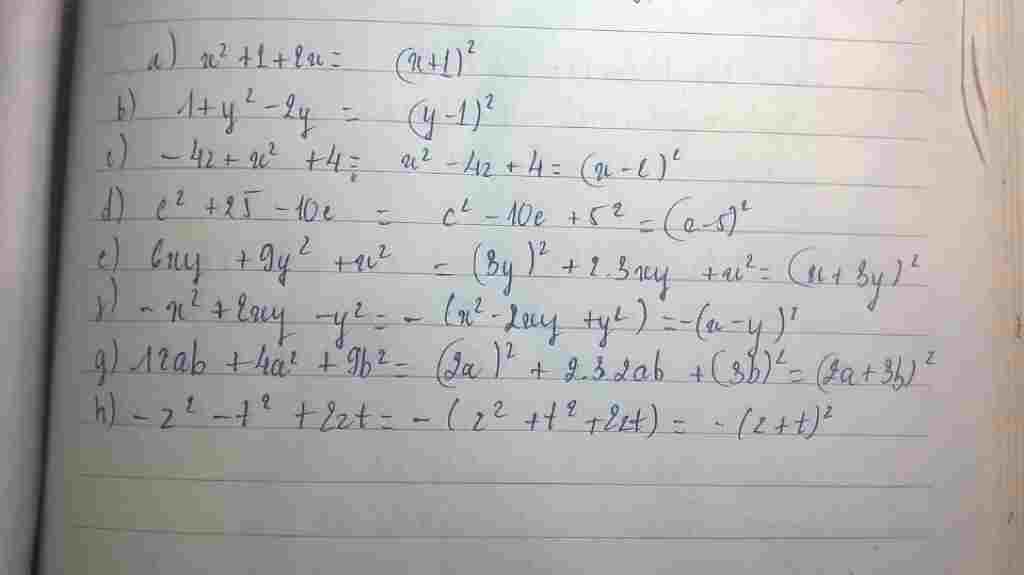 a) x² + 1 + 2x = (x+1)²
b) 1 + y² - 2y = (y-1)²
c) - 4x + x² + 4 = x² - 4x + 4 = (x-2)²
d) c² + 25 - 10c = c² - 10c + 5² = (c-5)²
e) 6xy + 9y² + x² = (3y)² + 2.3xy + x² = (x+3y)²
f) - x² + 2xy - y² = - (x² - 2xy + y²) = -(x-y)²
g) 12ab + 4a² + 9b² = (2a)² + 2.3.2ab + (3b)² = (2a+3b)²
h) - z² - t² + 2zt = - (z² + t² + 2zt) = - (z+t)²